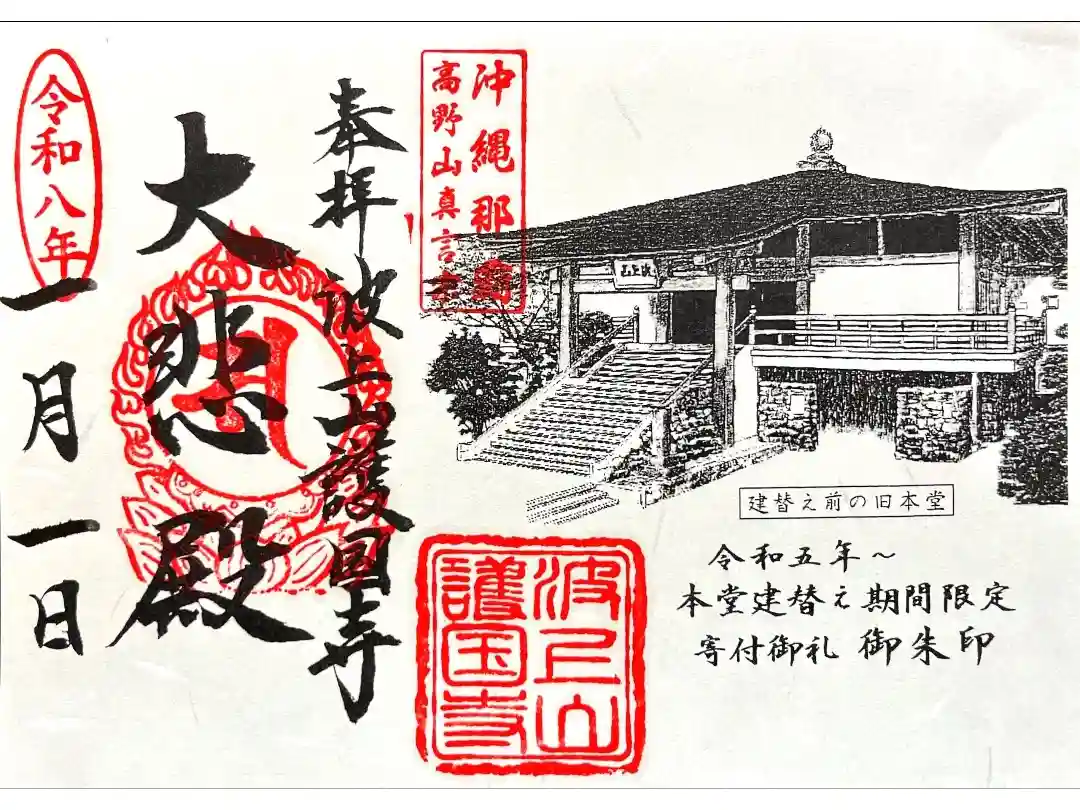 沖縄那覇
高野山真言宗
奉拝 波上山護国寺
大悲殿
令和八年
一月一日
波上山
護国寺
山上波
建替え前の旧本堂
令和五年～
本堂建替え期間限定
寄付御礼 御朱印